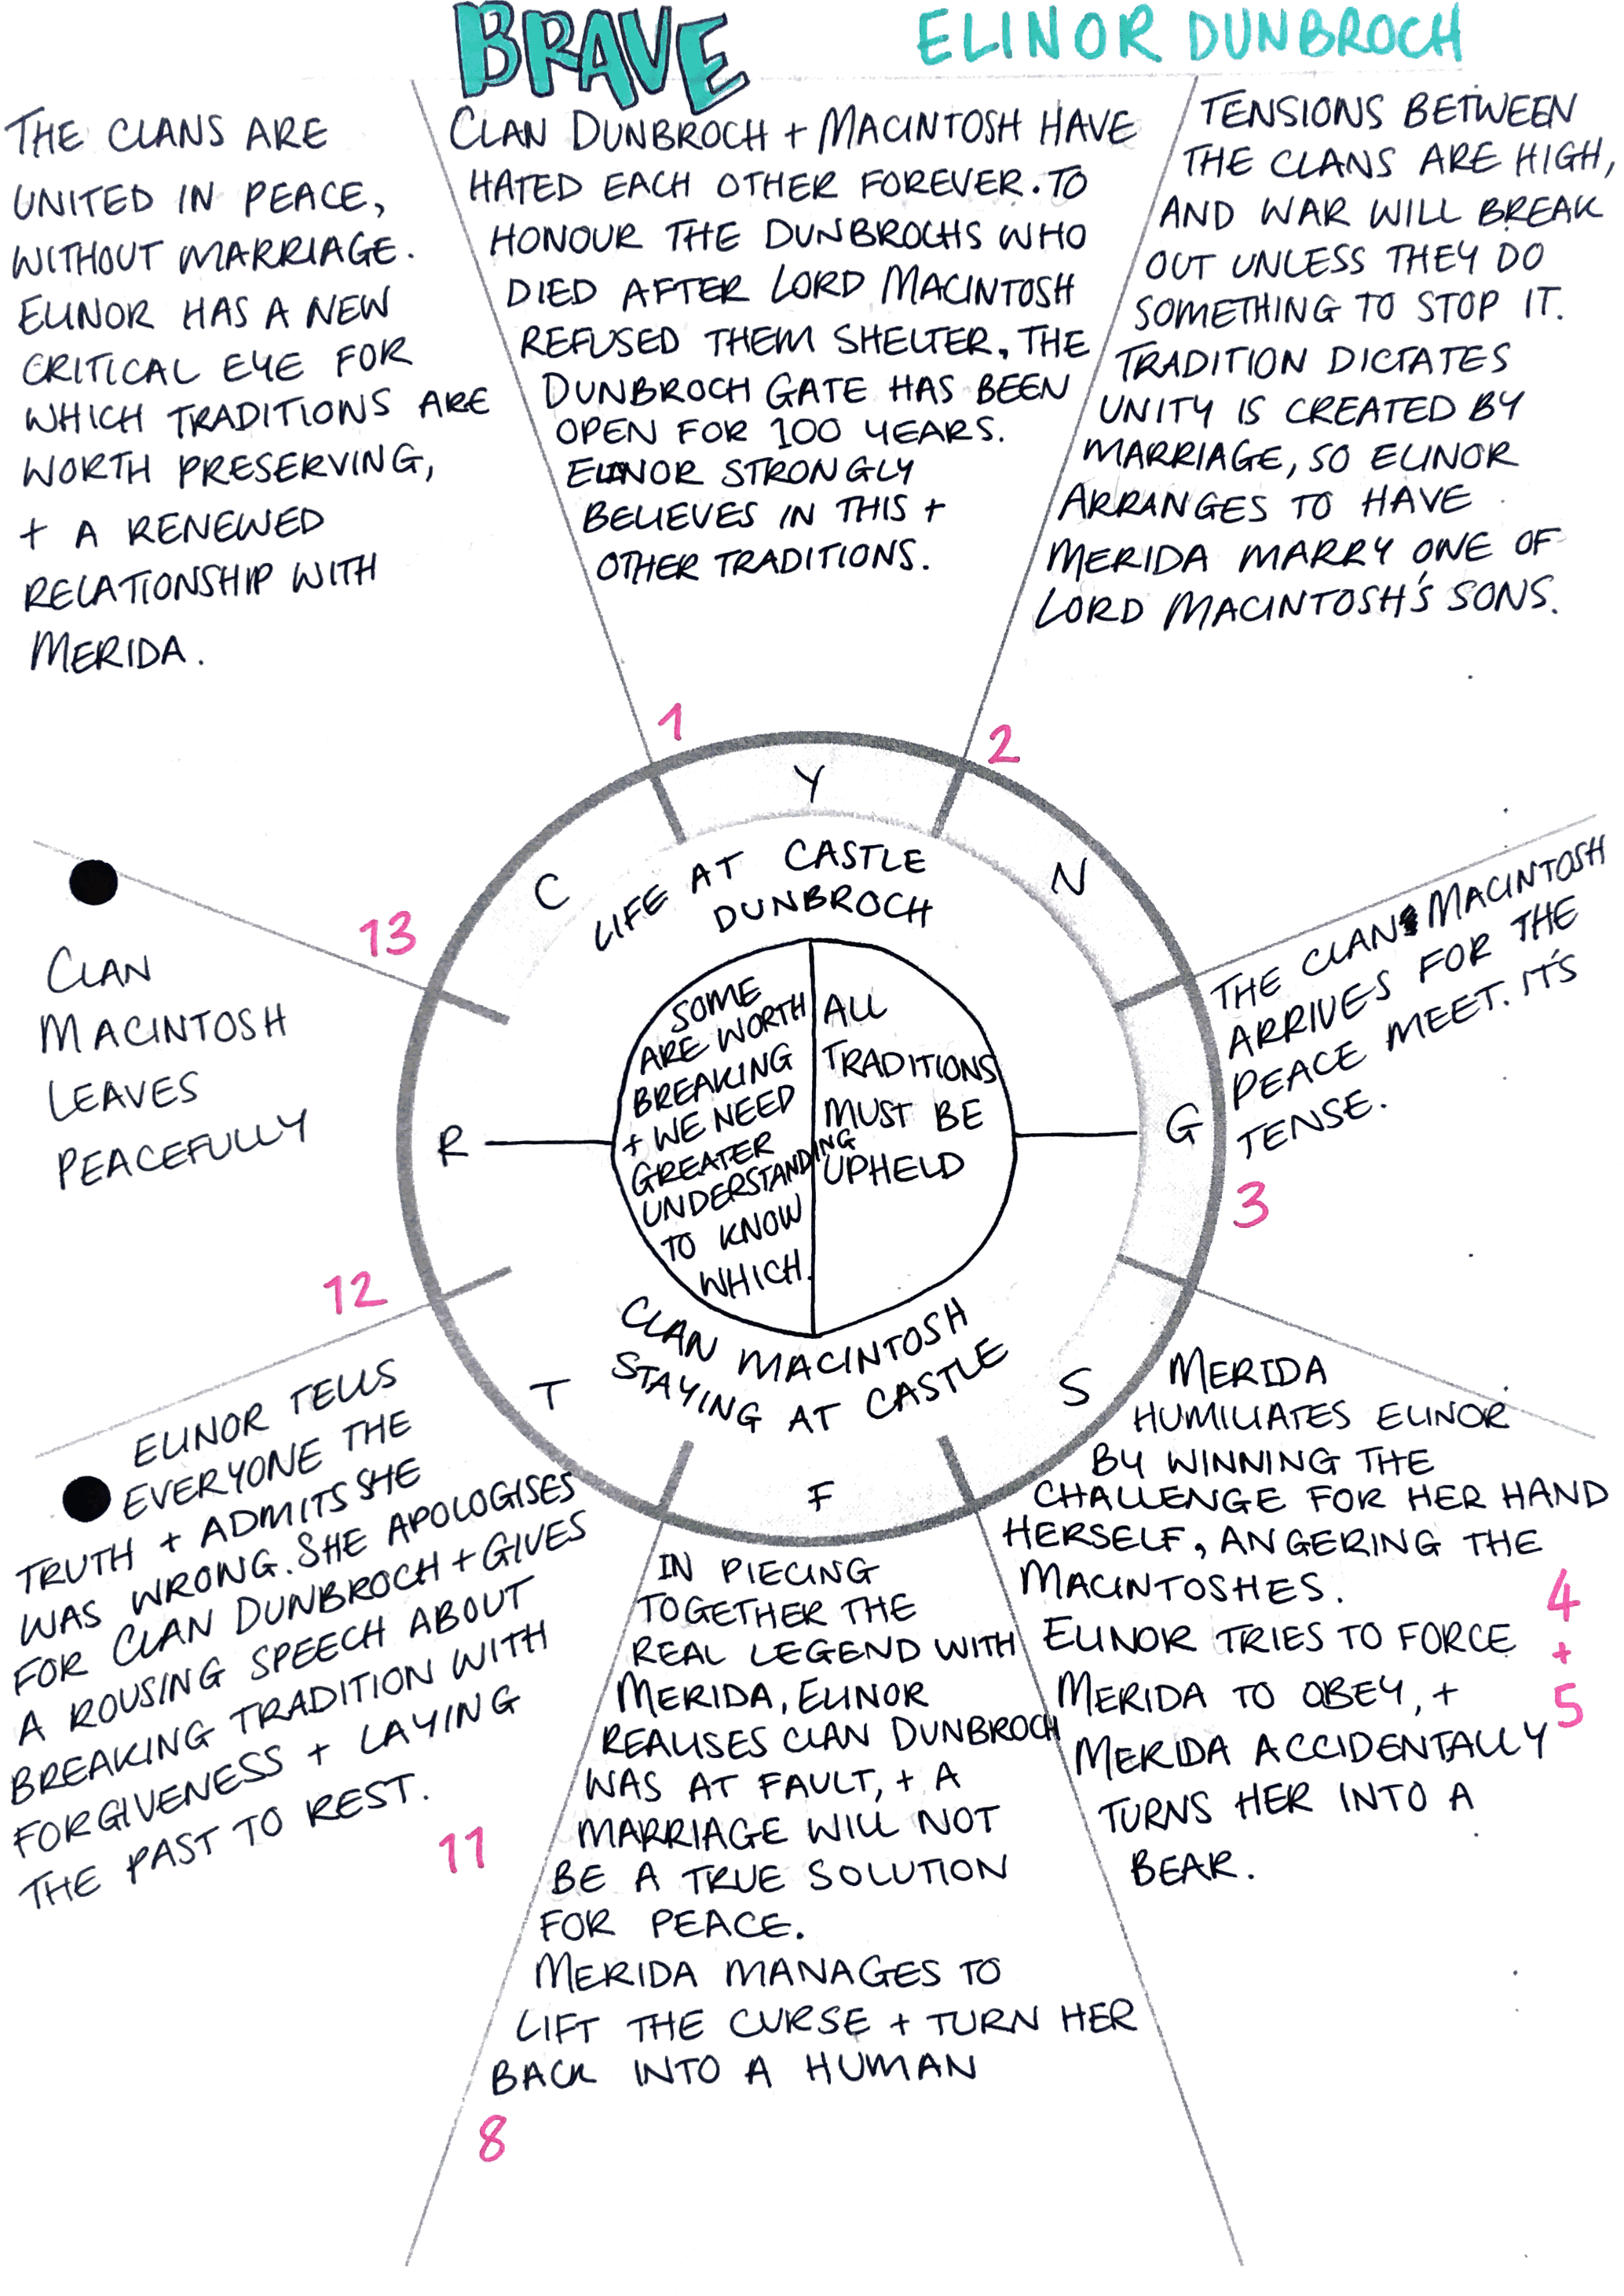 BRAVE
ELINOR DUNBROCH
CLAN DUNBROCH + MACINTOSH HAVE
HATED EACH OTHER FOREVER. TO
HONOUR THE DUNBROCHS WHO
DIED AFTER LORD MACINTOSH
REFUSED THEM SHELTER, THE
DUNBROCH GATE HAS BEEN
OPEN FOR 100 YEARS.
ELINOR STRONGLY
BELIEVES IN THIS +
OTHER TRADITIONS.
1
TENSIONS BETWEEN
THE CLANS ARE HIGH,
AND WAR WILL BREAK
OUT UNLESS THEY DO
SOMETHING TO STOP IT.
TRADITION DICTATES
UNITY IS CREATED BY
MARRIAGE, SO ELINOR
ARRANGES TO HAVE
MERIDA MARRY ONE OF
LORD MACINTOSH'S SONS.
2
THE CLAN MACINTOSH
ARRIVES FOR THE
PEACE MEET. IT'S
TENSE.
3
MERIDA
HUMILIATES ELINOR
BY WINNING THE
CHALLENGE FOR HER HAND
HERSELF, ANGERING THE
MACINTOSHES.
ELINOR TRIES TO FORCE
MERIDA TO OBEY, +
MERIDA ACCIDENTALLY
TURNS HER INTO A
BEAR.
4
+
5
IN PIECING
TOGETHER THE
REAL LEGEND WITH
MERIDA, ELINOR
REALISES CLAN DUNBROCH
WAS AT FAULT, + A
MARRIAGE WILL NOT
BE A TRUE SOLUTION
FOR PEACE.
MERIDA MANAGES TO
LIFT THE CURSE + TURN HER
BACK INTO A HUMAN
8
ELINOR TELLS
EVERYONE THE
TRUTH + ADMITS SHE
WAS WRONG. SHE APOLOGISES
FOR CLAN DUNBROCH + GIVES
A ROUSING SPEECH ABOUT
BREAKING TRADITION WITH
FORGIVENESS + LAYING
THE PAST TO REST.
11
CLAN
MACINTOSH
LEAVES
PEACEFULLY
12
THE CLANS ARE
UNITED IN PEACE,
WITHOUT MARRIAGE.
ELINOR HAS A NEW
CRITICAL EYE FOR
WHICH TRADITIONS ARE
WORTH PRESERVING,
+ A RENEWED
RELATIONSHIP WITH
MERIDA.
13
Y
N
G
S
F
T
R
C
LIFE AT CASTLE
DUNBROCH
ALL
TRADITIONS
MUST BE
UPHELD
SOME
ARE WORTH
BREAKING
+ WE NEED
GREATER
UNDERSTANDING
TO KNOW
WHICH.
CLAN MACINTOSH
STAYING AT CASTLE